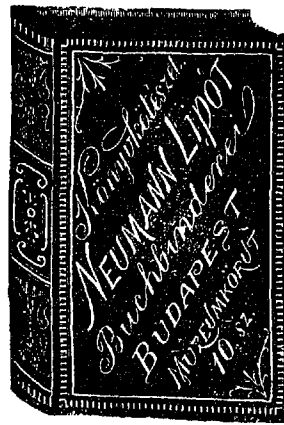 Könyvkötészet
NEUMANN LIPÓT
Buchbinderei
BUDAPEST
MUZEUMKÖRÚT
10 SZ.